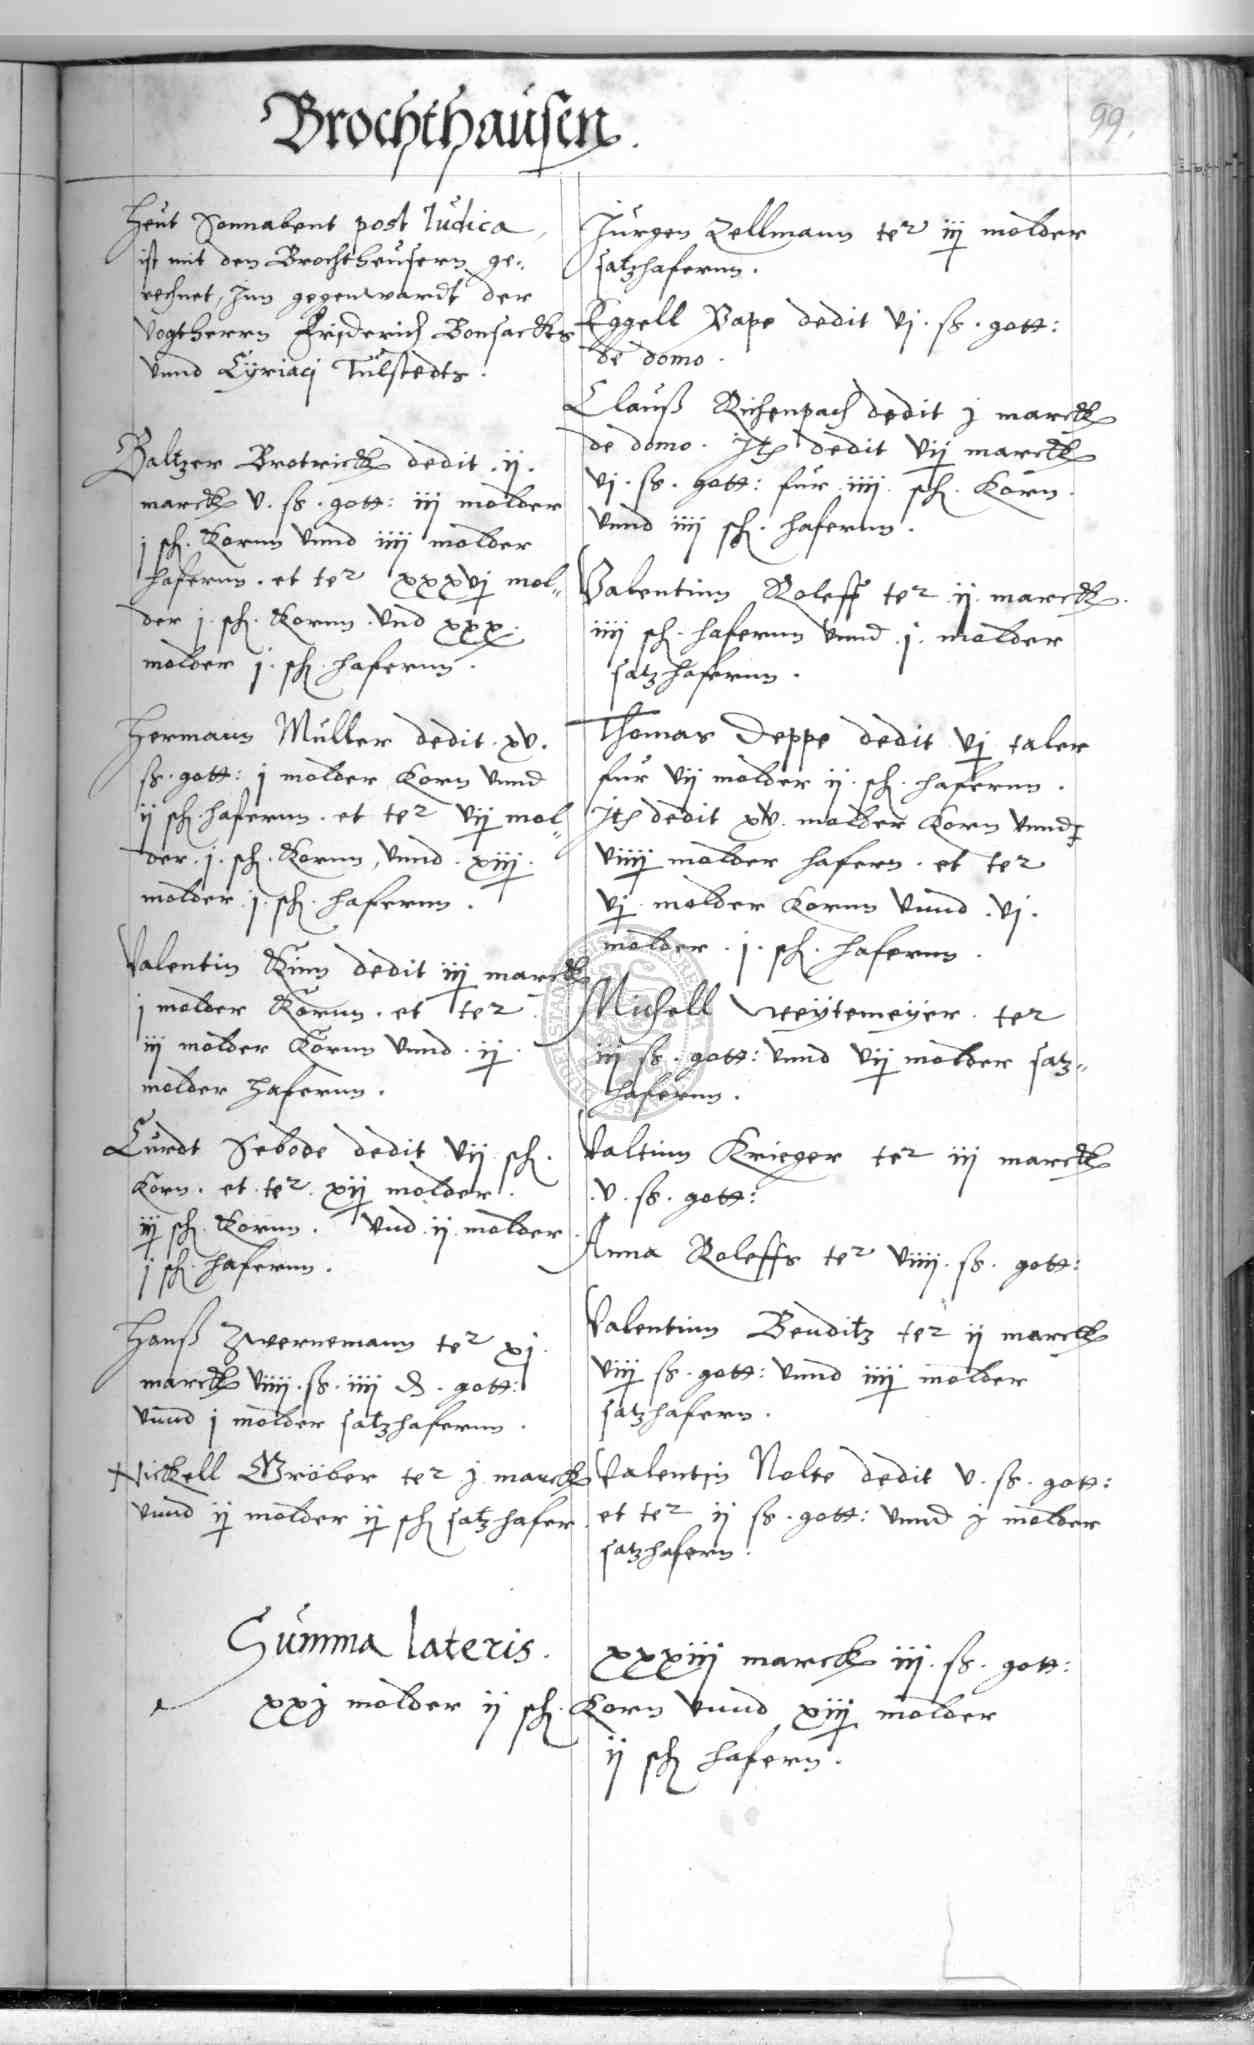 Brochthausen.
99.
Heut Sonnabent post Iudica,
ist mit den Brochtheusern ge-
rechnet, Inn gegenwardt der
Vogtherrn Friderich Bonsacks
vnnd Cyriaci Tulstedts.
Baltzer Brotrick dedit .ij.
marck v. ß. gott: iij molder
j sch. Kornn vnnd iiij molder
hafernn. et ter xxxvj mol-
der j. sch. Kornn. vnd xxx.
molder j. sch. hafernn.
Hermann Muller dedit. xv.
ß. gott: j molder Korn vnnd
ij sch. hafernn. et ter vij mol-
der. j. sch. Kornn, vnnd. xiij.
molder. j. sch. hafernn.
Valentin Kinn dedit iij marck
j molder Kornn. et ter
iij molder Kornn vnnd. ij.
molder hafernn.
Curdt Sebode dedit vij sch.
Korn. et. ter. xij molder.
iij sch. Kornn. vnd ij molder
j sch. hafernn.
Hanß Zwernemann ter xj.
marck viiij. ß. iiij ₰. gott:
vnnd j molder satzhafernn.
Nickell Gröber ter j marck
vnnd ij molder ij sch satzhafer.
Jurgen Zellmann ter iij molder
satzhafernn.
Eggell Pape dedit vj. ß. gott:
de domo.
Clauß Richenpach dedit j marck
de domo. Ite dedit vij marck
vj. ß. gott: fur iiij. sch. Korn.
vnnd iiij sch. hafernn.
Valentinn Roleff ter ij marck.
iiij sch. hafernn vnnd. j. molder
satzhafernn.
Thomas Deppe dedit vj taler
fur vij molder ij. sch. hafernn.
Ite dedit xv. molder Korn vnnd
viiij molder hafern. et ter
vj molder Kornn vnnd. vj.
molder. j. sch. hafernn.
Michell Weytemeyer. ter
iij ß. gott: vnnd vij molder satz-
hafernn.
Valtinn Krieger ter iij marck
.v. ß. gott:
Anna Roleffs ter viiij. ß. gott:
Valentinn Benditz ter ij marck
viij ß. gott: vnnd iiij molder
satzhafern.
Valentin Nolte dedit v. ß. gott:
et ter ij ß. gott: vnnd j molder
satzhafern.
Summa lateris. xxxiij marck iij. ß. gott:
xxj molder ij sch. Korn vnnd xiij molder
ij sch hafern.